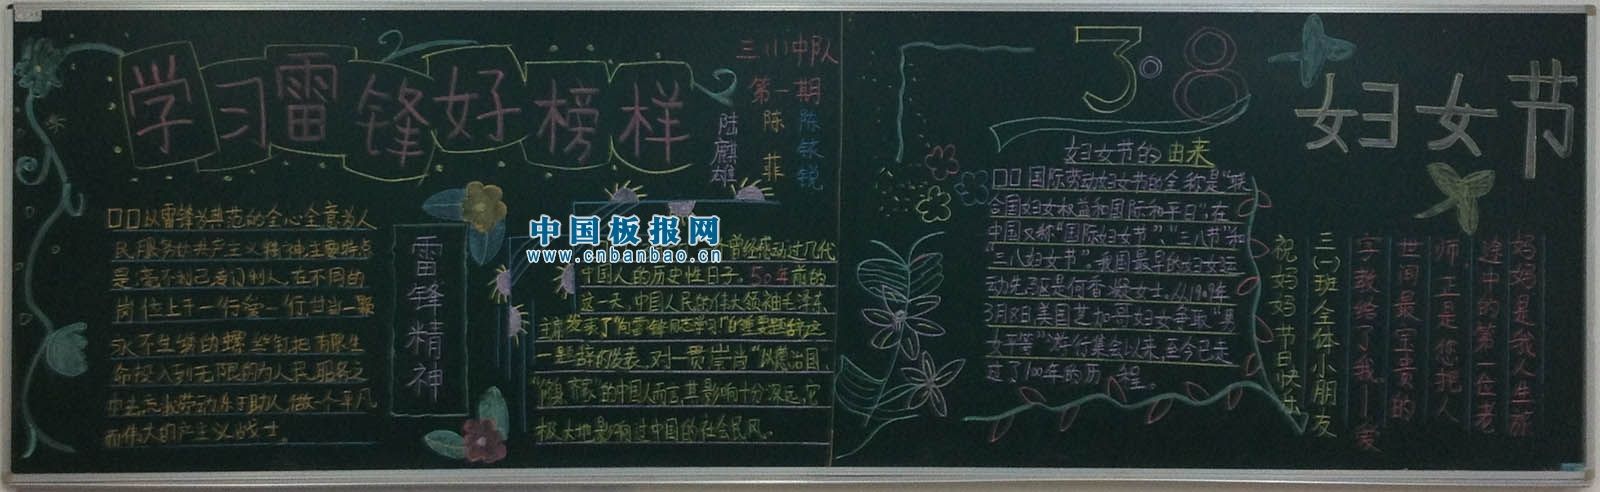 学习雷锋好榜样
三(1)中队
第一期
陈菲
陈
陆麒雄
以雷锋为典范的全心全意为人
民服务
是毫不利己专门利人,在不同的
岗位上干一行爱一行,甘当一颗
永不生锈的螺丝钉,把有限生
命投入到无限的为人民服务之
中去
助人,做一个平凡
而伟大的
战士。
雷锋精神
中国板报网
www.cnbanbao.cn
曾经感动过几代
中国人的历史性日子。50年前的
这一天,中国人民的伟大领袖毛泽东
主席发表了"向雷锋同志学习"的重要题辞,这
一题辞的发表,对一贯崇尚"以德治国"
的中国人而言,其影响十分深远,它
极大地影响过中国的社会民风。
3·8
妇女节
妇女节的由来
国际劳动妇女节的全称是"联
合国妇女权益和国际和平日",在
中国又称"国际妇女节""三八节"和
"三八妇女节"。我国最早的妇女运
动先驱是何香凝女士。从1909年
3月8日美国芝加哥妇女争取"男
女平等"游行集会以来,至今已走
过了100年的历程。
妈妈是我人生旅
途中的第一位老
师,正是您把人
世间最宝贵的
字教给了我——爱
三(一)班全体小朋友
祝妈妈节日快乐